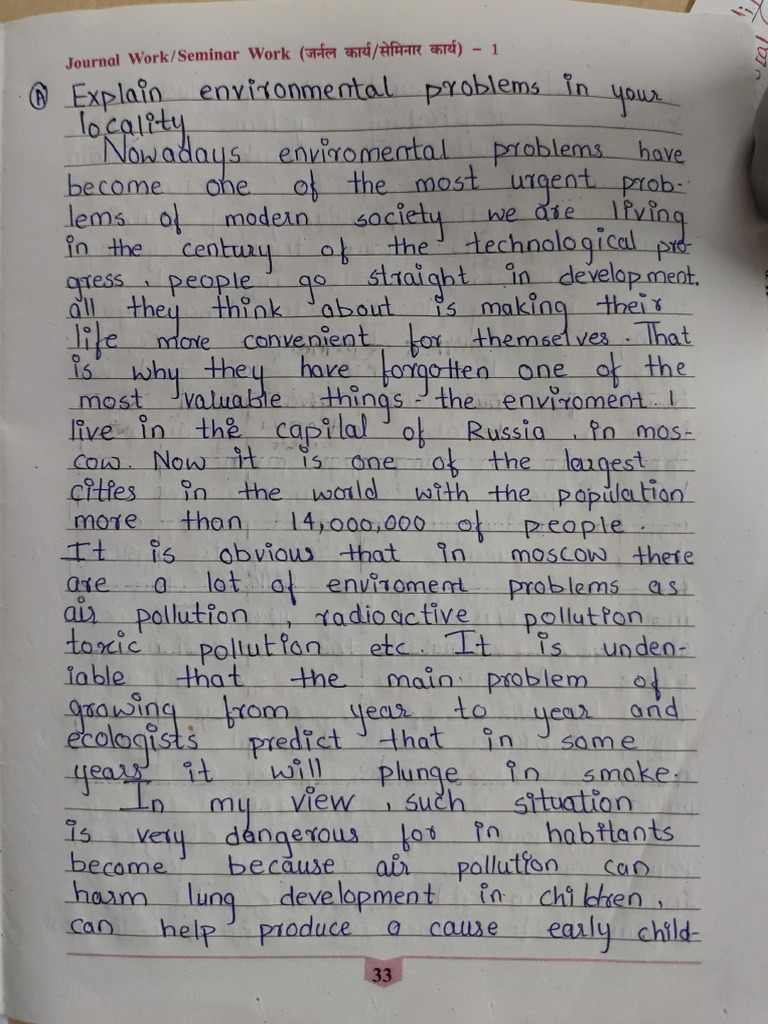 Journal Work/Seminar Work (जर्नल कार्य/सेमिनार कार्य) - 1
A Explain environmental problems in your
locality
Nowadays enviromental problems have
become one of the most urgent prob-
lems of modern society we are living
in the century of the technological pro-
gress, people go straight in development.
all they think about is making their
life more convenient for themselves. That
is why they have forgotten one of the
most valuable things - the enviroment. I
live in the capilal of Russia, in mos-
cow. Now it is one of the largest
cities in the world with the population
more than 14,000,000 of people.
It is obvious that in moscow there
are a lot of enviroment problems as
air pollution, radioactive pollution
toxic pollution etc. It is unden-
iable that the main problem of
growing from year to year and
ecologists predict that in some
years it will plunge in smoke.
In my view, such situation
is very dangerous for in habitants
become because air pollution can
harm lung development in children,
can help produce a cause early child-
33